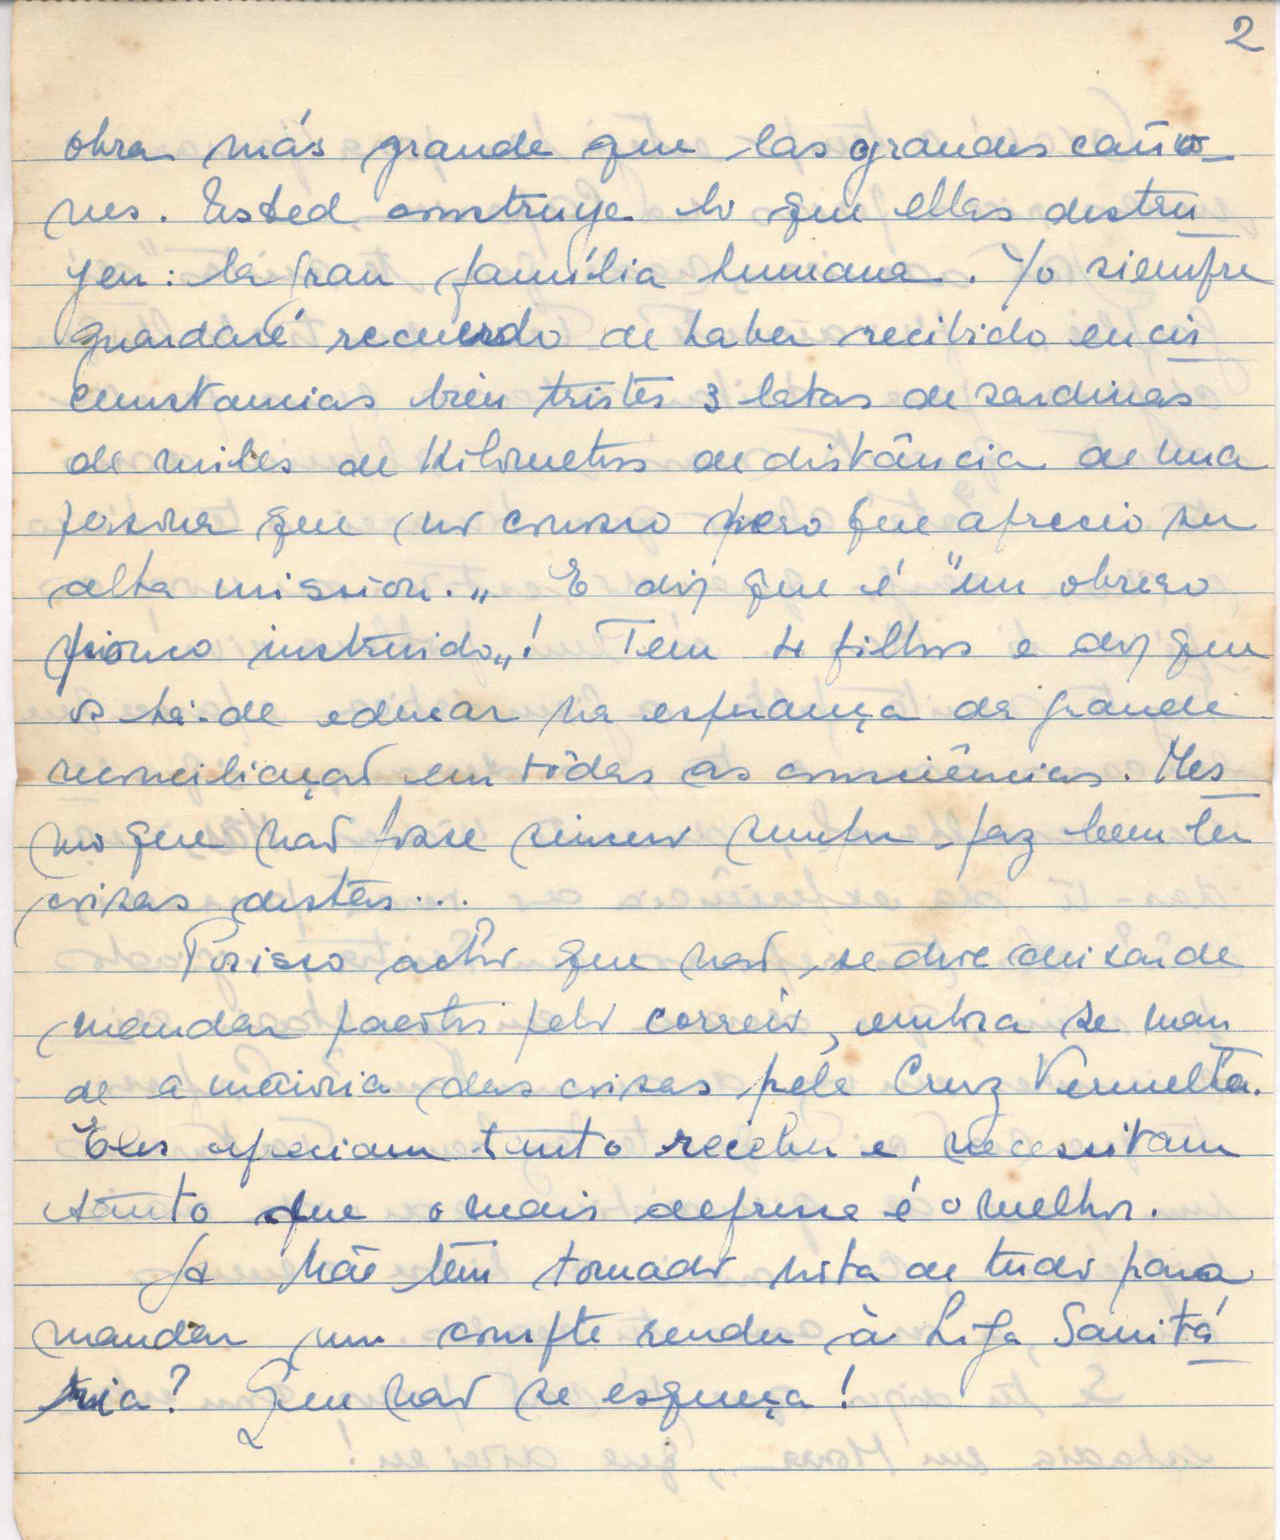 2
obra más grande que las grandes caño-
nes. Usted construye lo que ellas destru
yen: la gran família humana. Yo siempre
guardaré recuerdo de haber recibido en cir
cunstancias bien tristes 3 latas de sardinas
de miles de Kilometros de distância de una
persona que no conosco pero que aprecio su
alta mission." E diz que é "un obrero
poco instruido"! Tem 4 filhos e diz que
os há-de educar na esperança da grande
reconciliação em tôdas as consciências. Mes
mo que não fosse sincero sempre faz bem ler
coisas destas...
Porisso acho que não se deve deixar de
mandar pacotes pelo correio, embora se man
de a maioria das coisas pela Cruz Vermelha.
Eles apreciam tanto receber e necessitam
tanto que o mais depressa é o melhor.
A Mãe tem tomado nota de tudo para
mandar um compte rendu à Liga Sanitá
ria? Que não se esqueça!